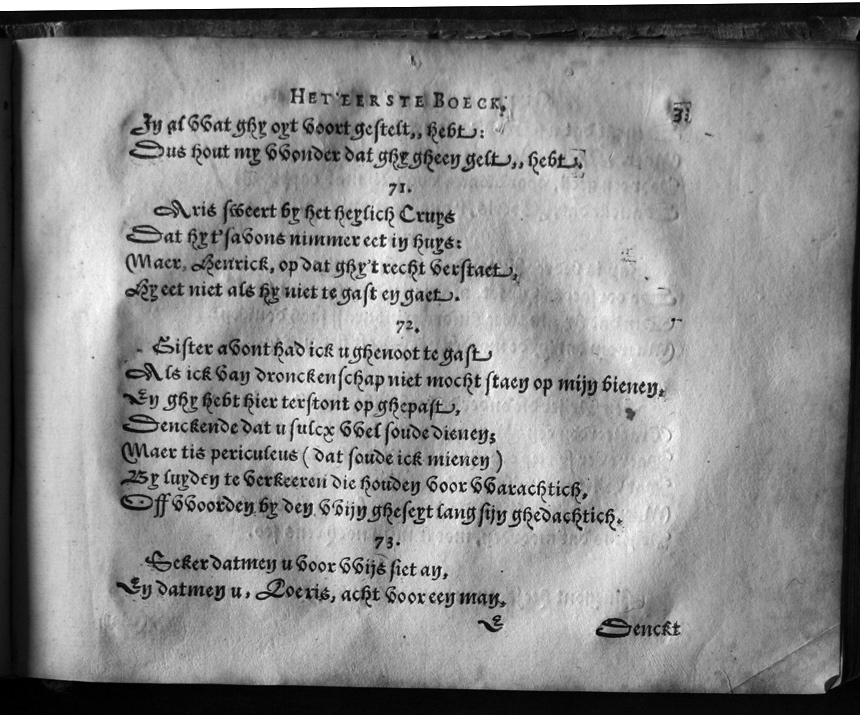 HET EERSTE BOECK. 31
In al wat ghy oyt voort gestelt,, hebt:
Dus hout my wonder dat ghy gheen gelt,, hebt.
71.
Aris sweert by het heylich Cruys
Dat hy t'savons nimmer eet in huys:
Maer, Henrick, op dat ghy't recht verstaet,
Hy eet niet als hy niet te gast en gaet.
72.
Gister avont had ick u ghenoot te gast
Als ick van dronckenschap niet mocht staen op mijn bienen,
En ghy hebt hier terstont op ghepast,
Denckende dat u sulcx wel soude dienen;
Maer tis periculeus (dat soude ick mienen)
By luyden te verkeeren die houden voor warachtich,
Off woorden by den wijn gheseyt lang sijn ghedachtich.
73.
Seker datmen u voor wijs siet an,
En datmen u, Poeris, acht voor een man,
E
Denckt